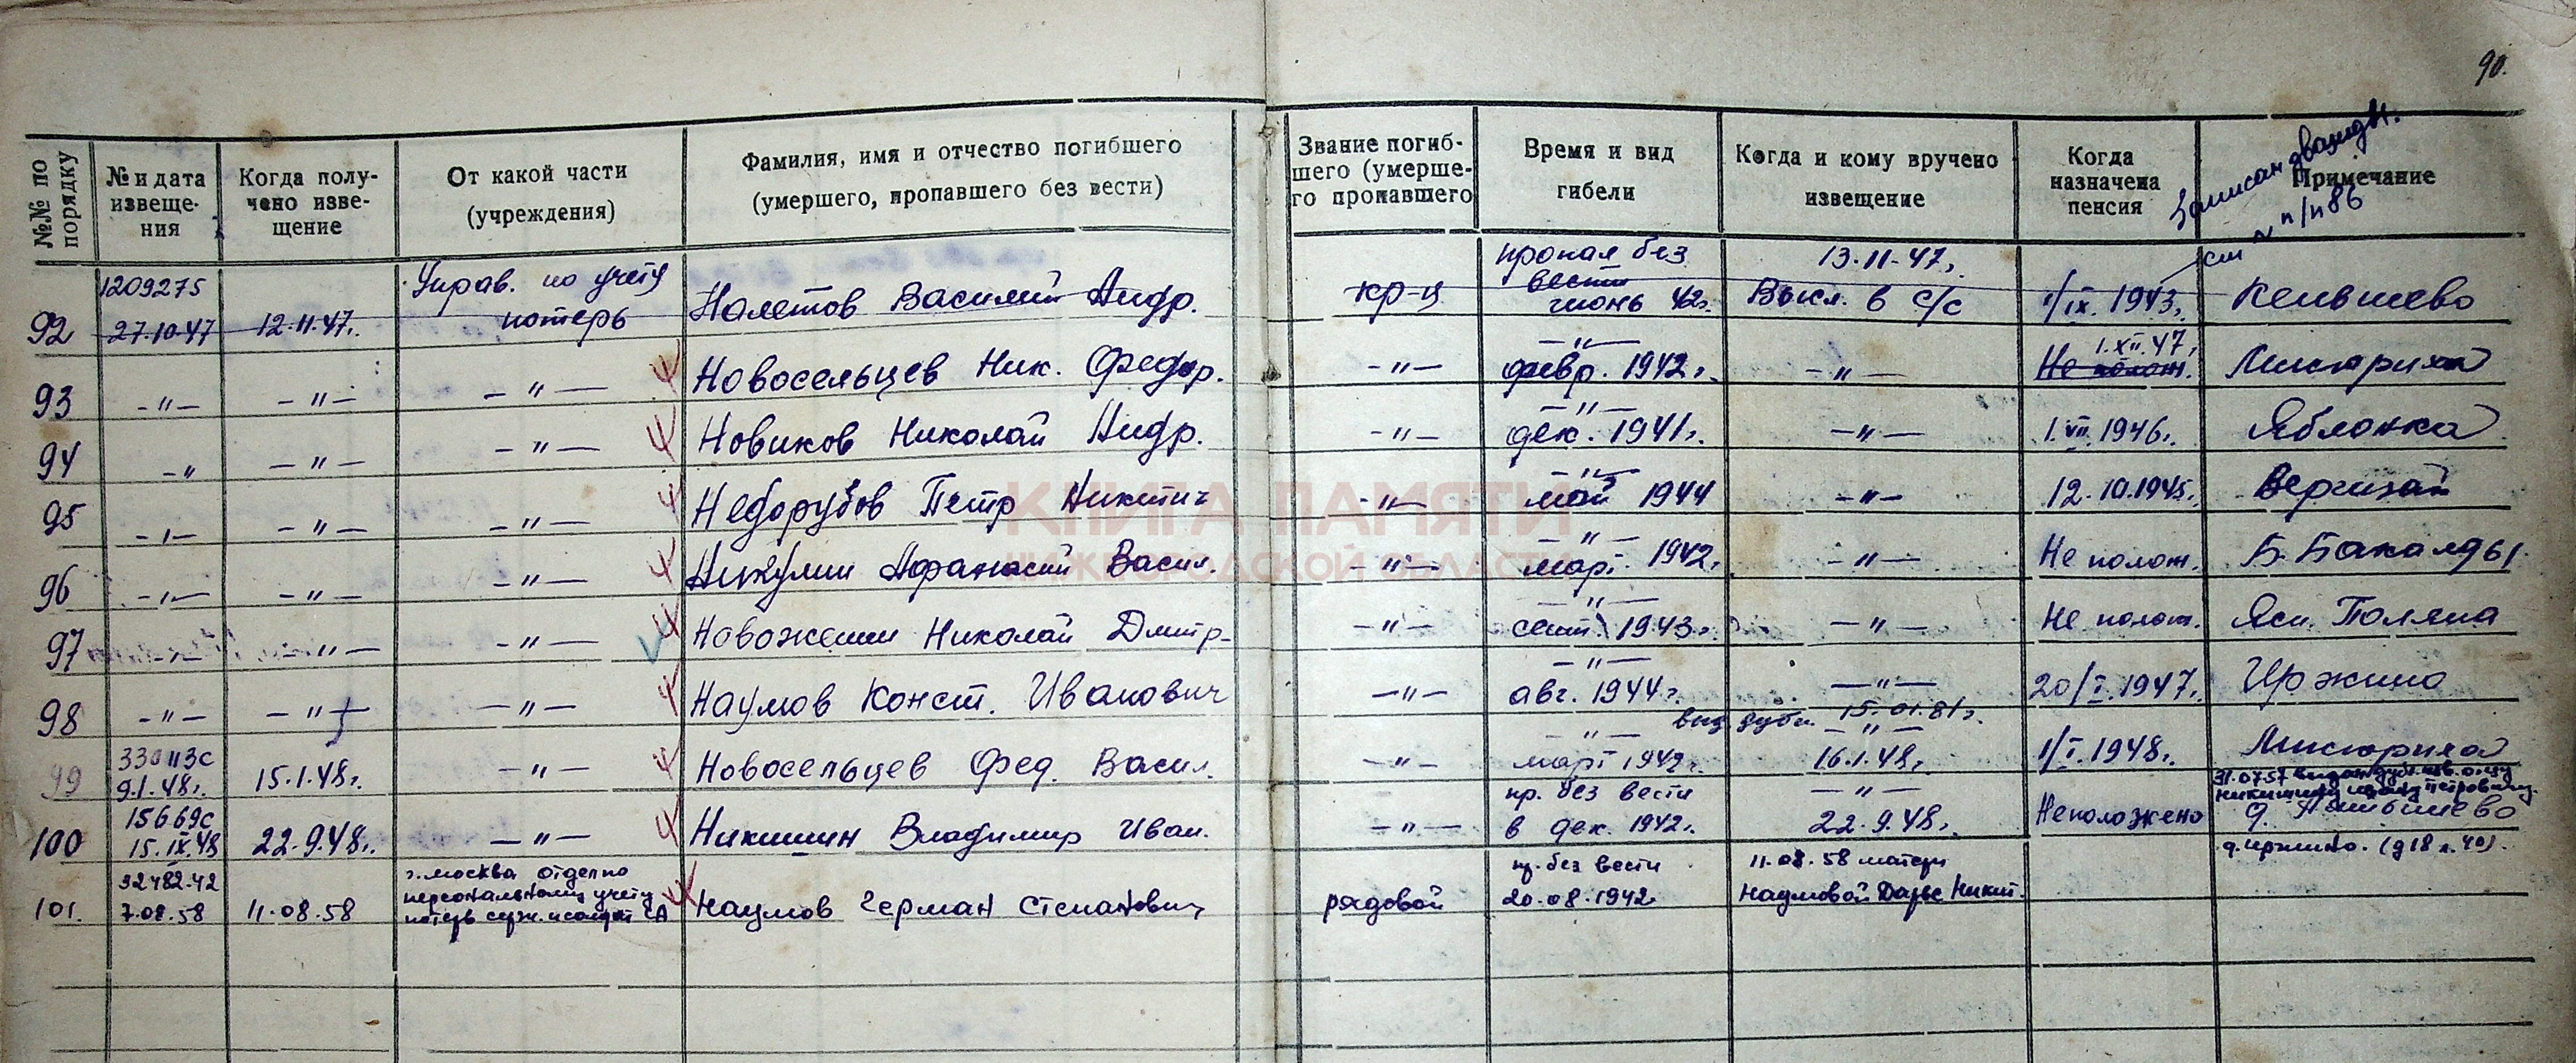 90.
№№ по порядку
№ и дата извеще-ния
Когда полу-чено изве-щение
От какой части (учреждения)
Фамилия, имя и отчество погибшего (умершего, пропавшего без вести)
Звание погиб-шего (умерше-го пропавшего
Время и вид гибели
Когда и кому вручено извещение
Когда назначена пенсия
Примечание
Записан дважды.
см № п/п 86
92 1209275 27.10.47 12.11.47г. Управ. по учету потерь Налетов Василий Андр. кр-ц пропал без вести июнь 42г. 13.11.47г. Выкл. в с/с 1/IX.1943г.
93 -"- -"- -"- Новосельцев Ник. Федор. -"- -"- февр. 1942г. -"- 1.XII.47г. Не полож. Мисюриха
94 -" -"- -"- Новиков Николай Андр. -"- -"- дек. 1941г. -"- 1.VII.1946г. Яблонка
95 -"- -"- -"- Недорубов Петр Никитич -"- -"- май 1944 -"- 12.10.1945г.
96 -"- -"- -"- Никулин Афанасий Васил. -"- -"- март 1942г. -"- Не полож. Б. Бакалды
97 -"- -"- -"- Новоженин Николай Дмитр- -"- -"- сент. 1943г. -"- Не полож. Ясн. Поляна
98 -"- -"- -"- Наумов Конст. Иванович -"- -"- авг. 1944г. -"- 20/I.1947г. Иржино
выд дубл. 15.01.81г.
99 330113с 9.1.48г. 15.1.48г. -"- Новосельцев Фед. Васил. -"- -"- март 1942г. -"- 16.1.48г. 1/I.1948г. Мисюриха
31.07.57 выдан дубл. изв. отцу Никишину Ивану Петровичу.
100 15669с 15.IX.48 22.9.48г. -"- Никишин Владимир Иван. -"- пр. без вести в дек. 1942г. -"- 22.9.48г. Неположено
д. Иржино. (д 18 л. 40).
101. 32482.42 7.08.58 11.08.58 г. Москва отделно персональному учету потерь серж. и солдат СА Наумов Герман Степанович рядовой пр. без вести 20.08.1942г 11.08.58 матери Наумовой Дарье Никит.
КНИГА ПАМЯТИ
НИЖЕГОРОДСКОЙ ОБЛАСТИ